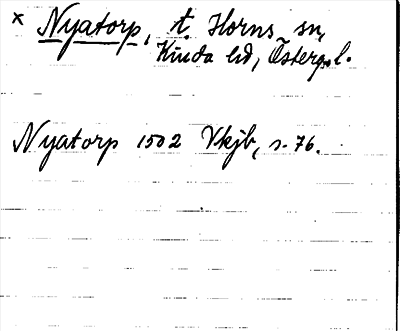 x Nyatorp, t. Horns sn,
Kinda hd, Österg. l.
Nyatorp 1502 Vkjb, s. 76.